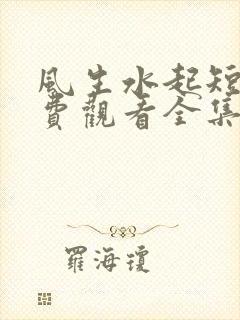 風生水起短
費觀看全集
羅海瓊